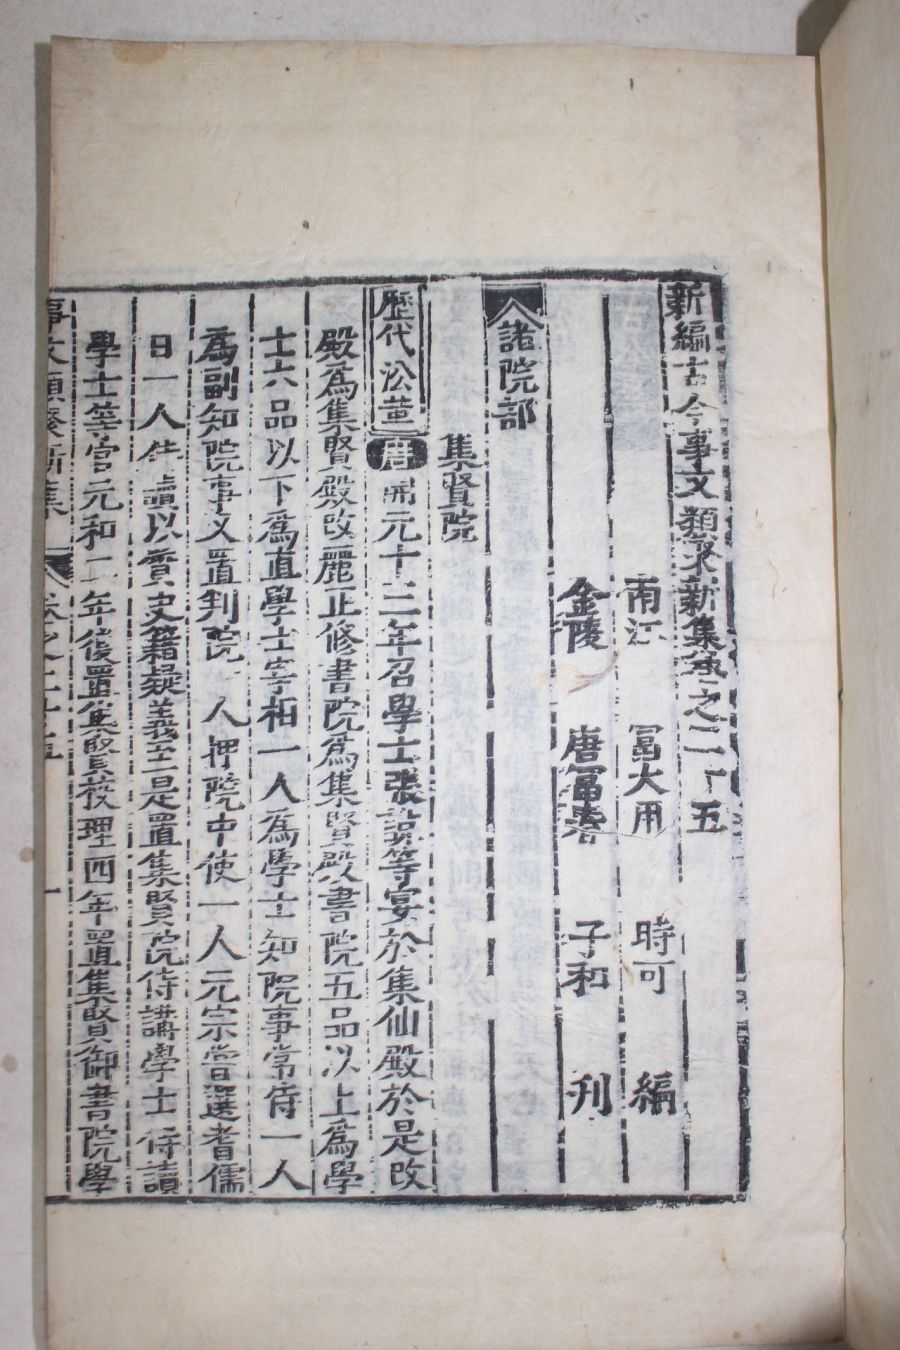 新編古今事文類聚新集卷之二十五
南江 冨大用 時可 編
金陵 唐冨春 子和 刋
諸院部
集賢院
歷代沿革 唐 開元十三年召學士張說等宴於集仙殿於是改
殿爲集賢殿改麗正修書院爲集賢殿書院五品以上爲學
士六品以下爲直學士宰相一人爲學士知院事常侍一人
爲副知院事又置判院一人押院中使一人元宗嘗選耆儒
日一人侍讀以質史籍疑義至是置集賢院侍講學士侍讀
學士等官元和二年復置集賢校理四年置集賢御書院學
事文類聚新集 卷之二十五 一